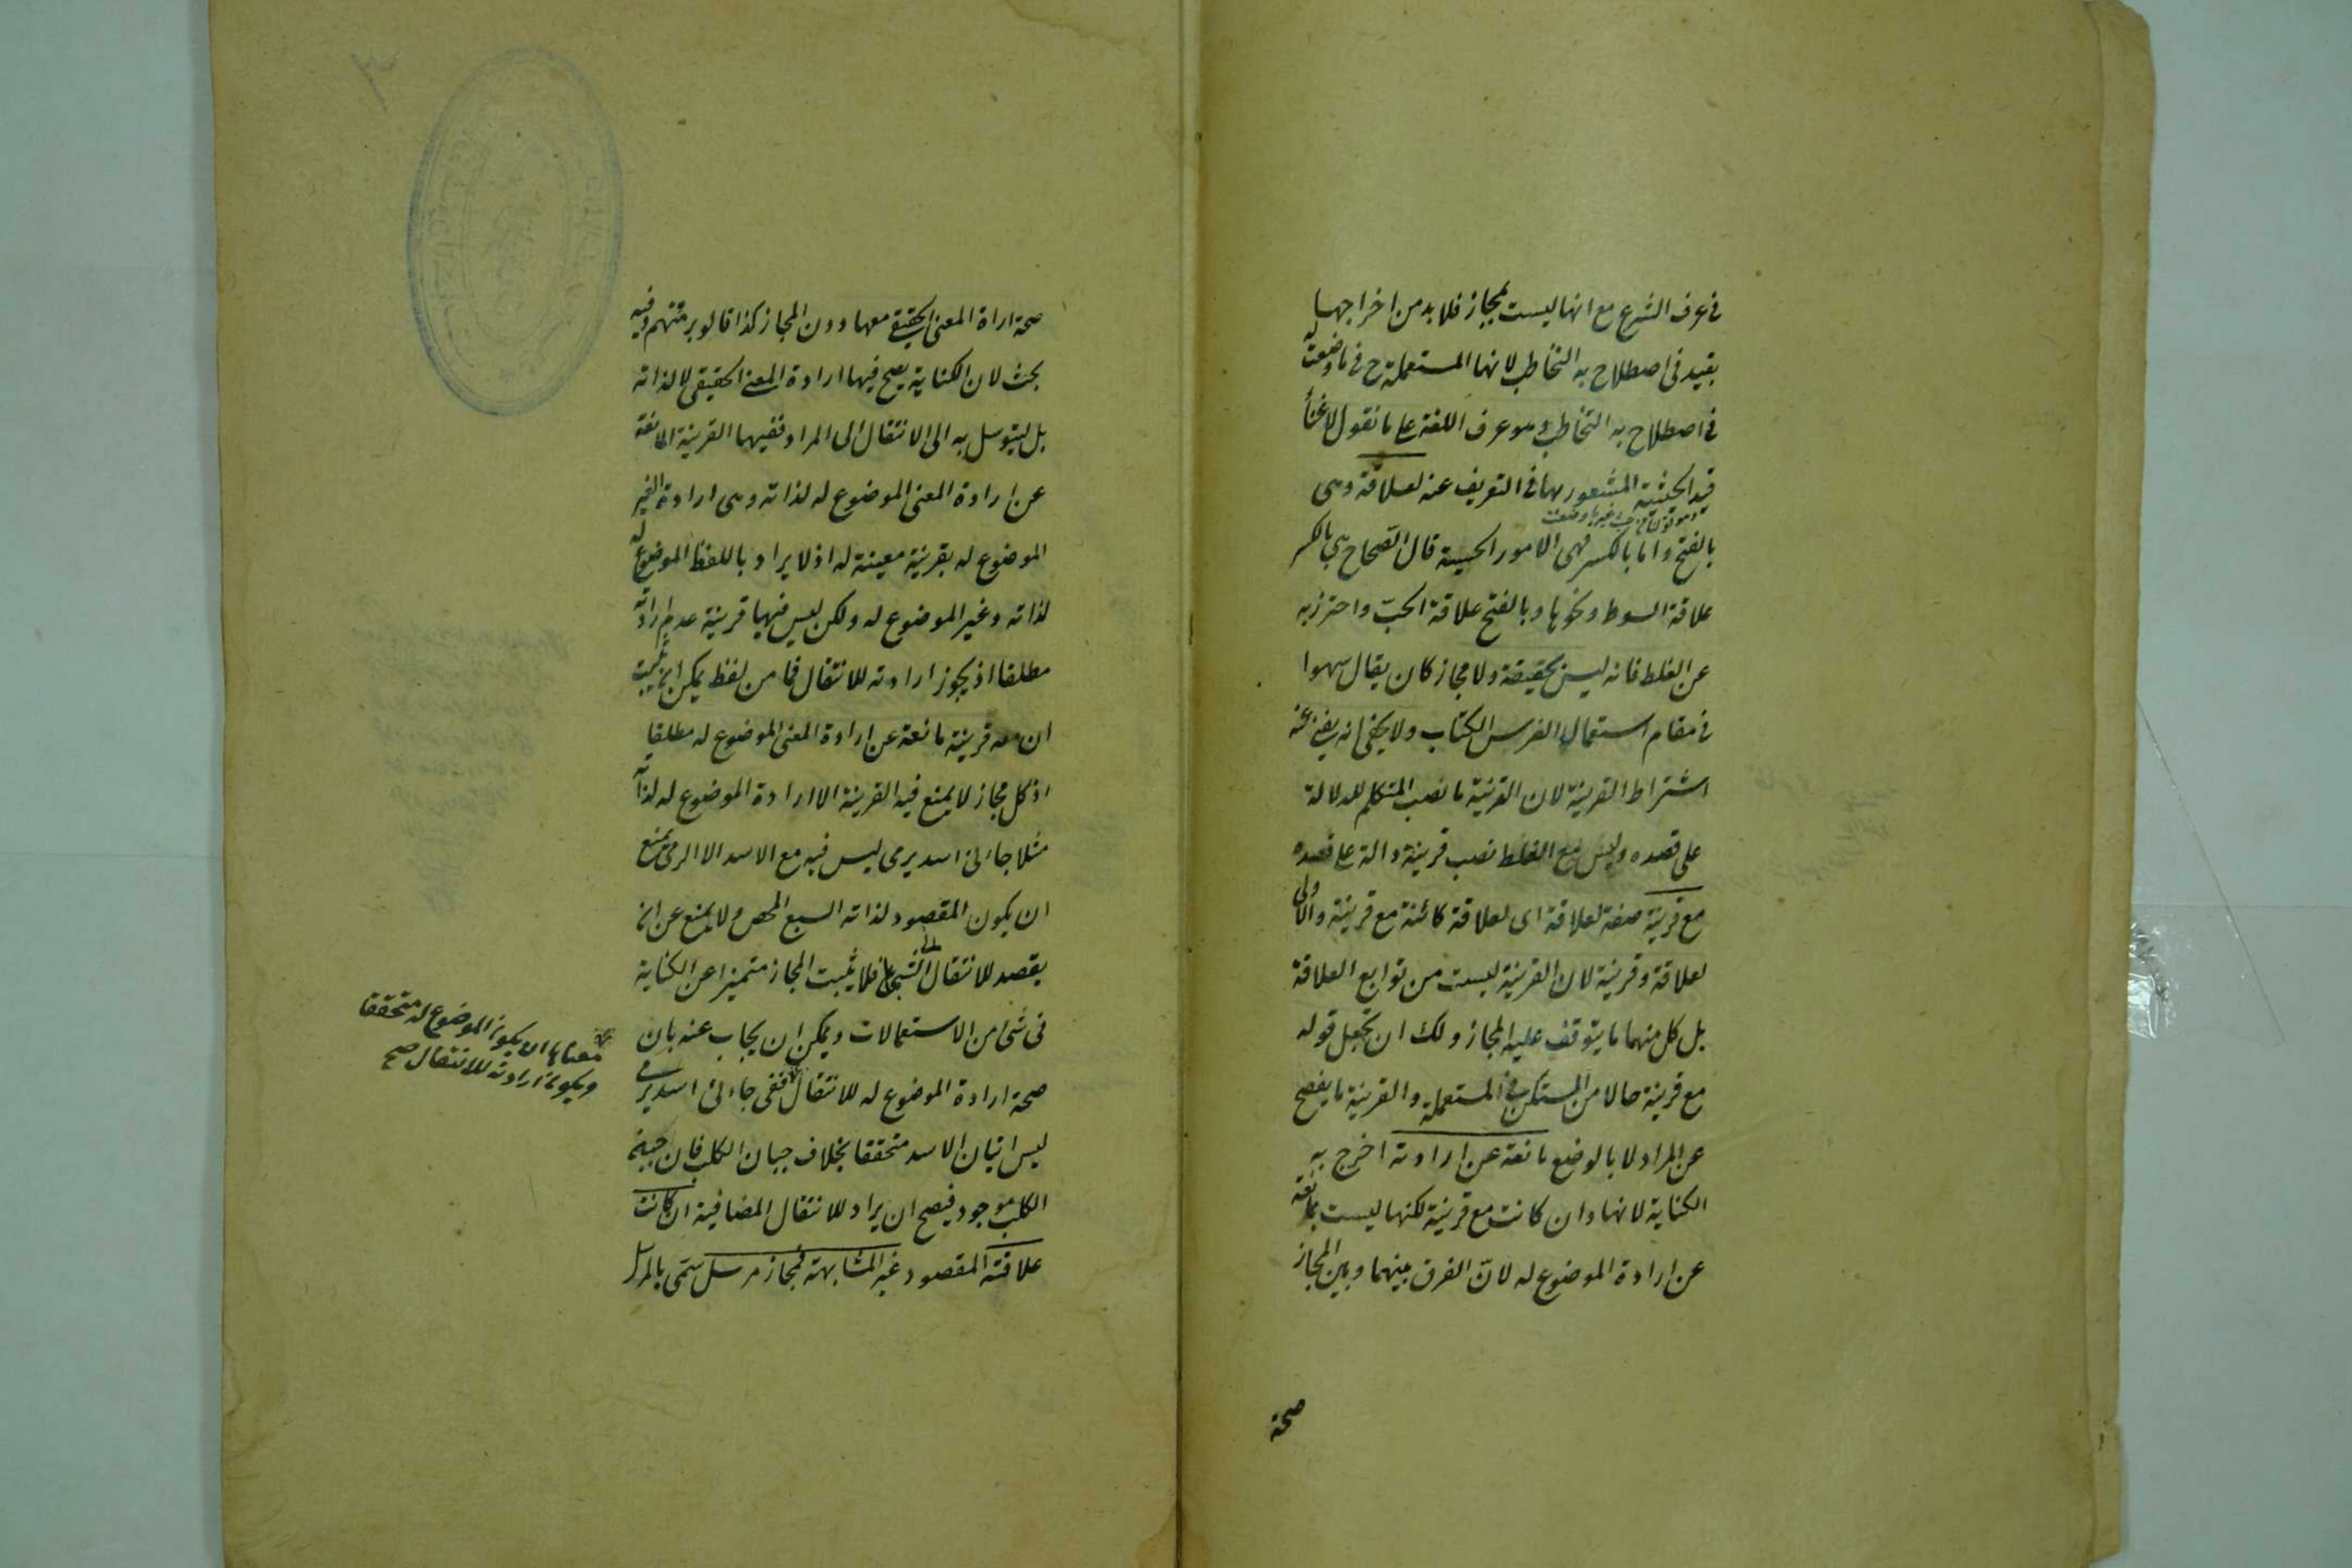 فى عرف الشرع مع انها ليست بمجاز فلا بد من اخراجها
بقيد فى اصطلاح به التخاطب لانها المستعملة ح فى ما وضعت له
فى اصطلاح به التخاطب وهو عرف اللغة على ما نقول لاغناء
قيد الحيثية المشعور بها فى التعريف عنه لعلاقة وهى
بالفتح واما بالكسر فهى الامور الحسية قال الصحاح هى بالكسر
علاقة السوط ونحوها وبالفتح علاقة الحب واحترز به
عن الغلط فانه ليس بحقيقة ولا مجاز كان يقال سهوا
فى مقام استعمال الفرس الكتاب ولا يخفى انه يغنى عنه
اشتراط القرينة لان القرينة ما نصب المتكلم للدلالة
على قصده وليس مع الغلط نصب قرينة دالة على قصده
مع قرينة صفة لعلاقة اى لعلاقة كائنة مع قرينة والاولى
لعلاقة وقرينة لان القرينة ليست من توابع العلاقة
بل كل منهما ما يتوقف عليه المجاز ولك ان تجعل قوله
مع قرينة حالا من المستكن فى المستعملة والقرينة ما يفصح
عن المراد لا بالوضع مانعة عن ارادته اخرج به
الكناية لانها وان كانت مع قرينة لكنها ليست بمانعة
عن ارادة الموضوع له لان الفرق بينهما وبين المجاز
صحة
صحة اراة المعنى الحقيقى معها دون المجاز كذا قالو برمتهم وفيه
بحث لان الكناية يصح فيها ارادة المعنى الحقيقى لا لذاته
بل ليتوسل به الى الانتقال الى المراد ففيها القرينة المانعة
عن ارادة المعنى الموضوع له لذاته وهى ارادة الغير
الموضوع له بقرينة معينة له اذ لا يراد باللفظ الموضوع له
لذاته وغير الموضوع له ولكن ليس فيها قرينة عدم ارادته
مطلقا اذ يجوز ارادته للانتقال فما من لفظ يمكن ان يثبت
ان معه قرينة مانعة عن ارادة المعنى الموضوع له مطلقا
اذ كل مجاز لا يمنع فيه القرينة الا ارادة الموضوع له لذاته
مثلا جاءنى اسد يرمى ليس فيه مع الاسد الا الرمى يمنع
ان يكون المقصود لذاته السبع المحض ولا يمنع عن ان
يقصد للانتقال الى الشجاع فلا يثبت المجاز متميزا عن الكناية
فى شئ من الاستعمالات ويمكن ان يجاب عنه بان
صحة ارادة الموضوع له للانتقال ففى جاءنى اسد يرمى
معناها ان يكون الموضوع له متحققا
ويكون ارادته للانتقال صح
ليس اتيان الاسد متحققا بخلاف جبان الكلب فان جبن
الكلب موجود فيصح ان يراد للانتقال المضافية ان كانت
علاقته المقصود غير المشابهة فمجاز مرسل سمى بالمرسل
٣